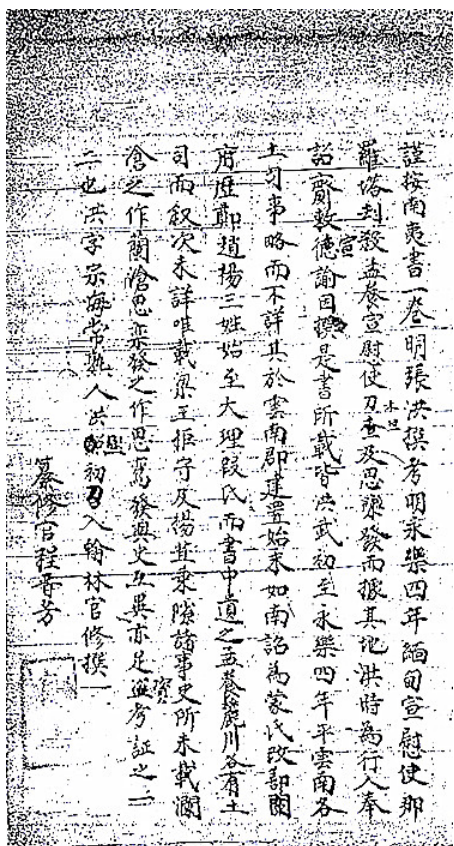 謹按南夷書一卷明張洪撰考明永樂四年緬甸宣慰使那
羅塔刦殺孟養宣慰使刀查及思欒發而據其地洪時為行人奉
詔齎敕宣德諭因撰是書所載皆洪武初至永樂四年平雲南各
土司事略而不詳其於雲南郡建置始末如南詔為蒙氏改鄯闡
府歷鄭趙楊三姓始至大理段氏而書中遺之孟養麓川各有土
司而叙次未詳唯載梁王拒守及楊苴乘隙諸事史所未載瀾
滄之作蘭滄思欒發之作思鸞發與史互異亦足資考証之一
二也洪字宗海常熟人洪熙初召入翰林官修撰
纂修官程晉芳